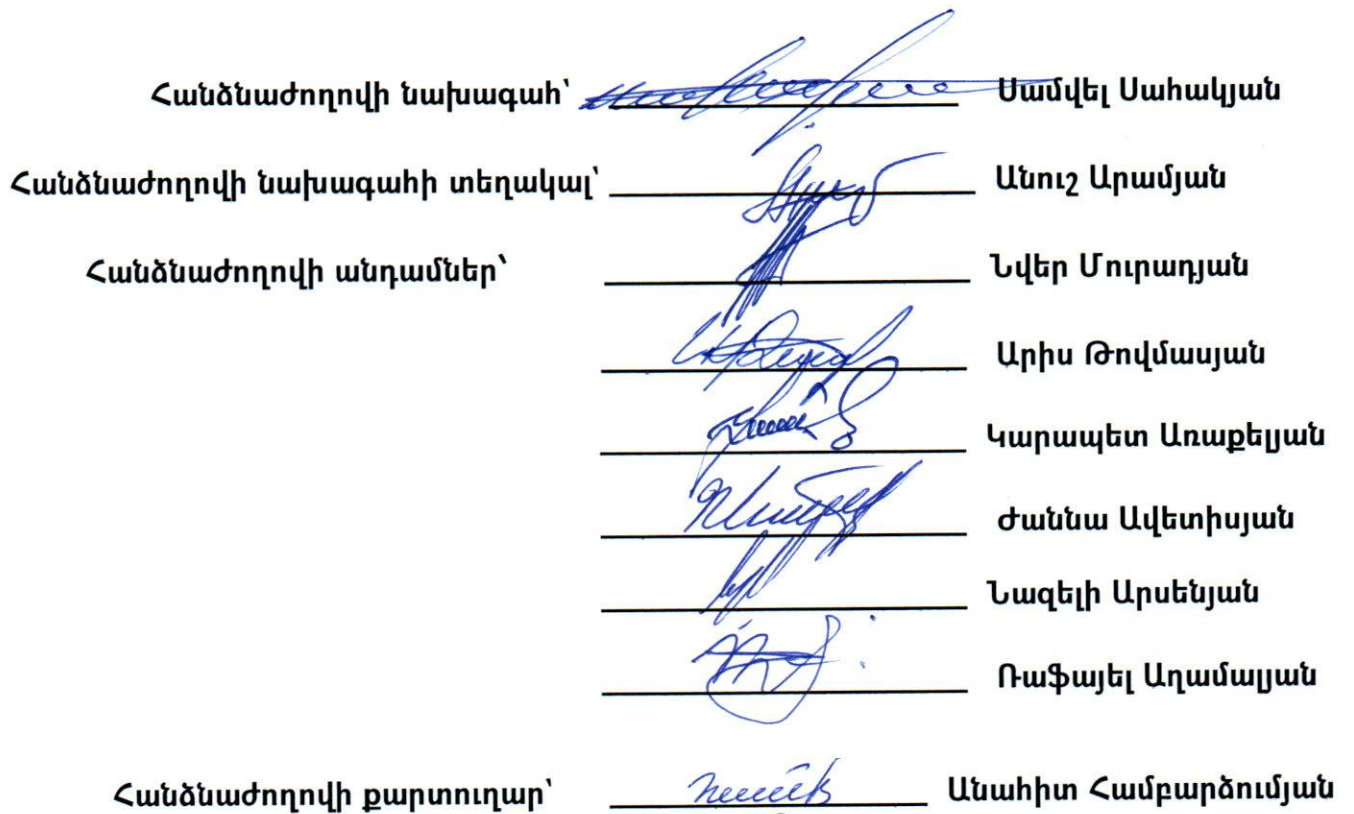 Հանձնաժողովի նախագահ՝ Սամվել Սահակյան
Հանձնաժողովի նախագահի տեղակալ՝ Անուշ Արամյան
Հանձնաժողովի անդամներ՝ Նվեր Մուրադյան
Արիս Թովմասյան
Կարապետ Առաքելյան
Ժաննա Ավետիսյան
Նազելի Արսենյան
Ռաֆայել Աղամալյան
Հանձնաժողովի քարտուղար՝ Անահիտ Համբարձումյան